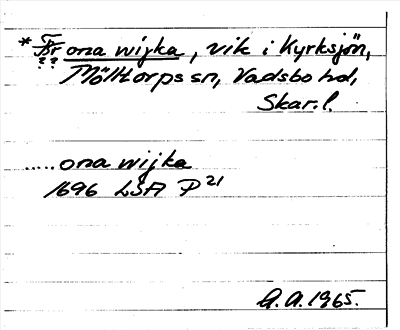 * ona wijka, vik i Kyrksjön,
??
Mölltorps sn, Vadsbo hd,
Skar.l.
.....ona wijka
1696 LSA P 21
A.A. 1965.